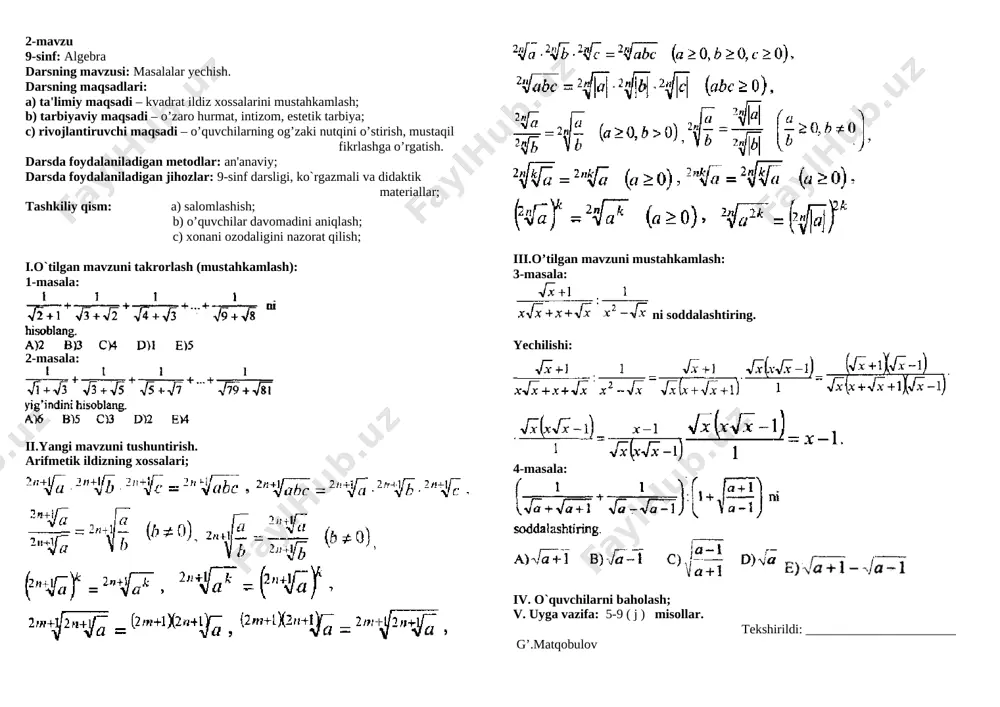 2-mavzu
9-sinf: Algebra
Darsning mavzusi: Masalalar yechish.
Darsning maqsadlari:
a) ta'limiy maqsadi – kvadrat ildiz xossalarini mustahkamlash;
b) tarbiyaviy maqsadi – o’zaro hurmat, intizom, estetik tarbiya;
c) rivojlantiruvchi maqsadi – o’quvchilarning og’zaki nutqini o’stirish, mustaqil
fikrlashga o’rgatish.
Darsda foydalaniladigan metodlar: an'anaviy;
Darsda foydalaniladigan jihozlar: 9-sinf darsligi, ko`rgazmali va didaktik
materiallar;
Tashkiliy qism: a) salomlashish;
b) o’quvchilar davomadini aniqlash;
c) xonani ozodaligini nazorat qilish;
I.O`tilgan mavzuni takrorlash (mustahkamlash):
1-masala:
1/(√2+1) + 1/(√3+√2) + 1/(√4+√3) + ... + 1/(√9+√8) ni
hisoblang.
A)2 B)3 C)4 D)1 E)5
2-masala:
1/(√1+√3) + 1/(√3+√5) + 1/(√5+√7) + ... + 1/(√79+√81)
yig'indini hisoblang.
A)6 B)5 C)3 D)2 E)4
II.Yangi mavzuni tushuntirish.
Arifmetik ildizning xossalari;
²ⁿ⁺¹√a · ²ⁿ⁺¹√b · ²ⁿ⁺¹√c = ²ⁿ⁺¹√abc , ²ⁿ⁺¹√abc = ²ⁿ⁺¹√a · ²ⁿ⁺¹√b · ²ⁿ⁺¹√c ,
²ⁿ⁺¹√a / ²ⁿ⁺¹√a = ²ⁿ⁺¹√(a/b) (b ≠ 0), ²ⁿ⁺¹√(a/b) = ²ⁿ⁺¹√a / ²ⁿ⁺¹√b (b ≠ 0),
(²ⁿ⁺¹√a)ᵏ = ²ⁿ⁺¹√(aᵏ) , ²ⁿ⁺¹√(aᵏ) = (²ⁿ⁺¹√a)ᵏ ,
²ᵐ⁺¹√(²ⁿ⁺¹√a) = ⁽²ᵐ⁺¹⁾⁽²ⁿ⁺¹⁾√a , ⁽²ᵐ⁺¹⁾⁽²ⁿ⁺¹⁾√a = ²ᵐ⁺¹√(²ⁿ⁺¹√a) ,
²ⁿ√a · ²ⁿ√b · ²ⁿ√c = ²ⁿ√abc (a ≥ 0, b ≥ 0, c ≥ 0),
²ⁿ√abc = ²ⁿ√|a| · ²ⁿ√|b| · ²ⁿ√|c| (abc ≥ 0),
²ⁿ√a / ²ⁿ√b = ²ⁿ√(a/b) (a ≥ 0, b > 0) , ²ⁿ√(a/b) = ²ⁿ√|a| / ²ⁿ√|b| (a/b ≥ 0, b ≠ 0),
²ⁿ√(ᵏ√a) = ²ⁿᵏ√a (a ≥ 0) , ²ⁿᵏ√a = ²ⁿ√(ᵏ√a) (a ≥ 0),
(²ⁿ√a)ᵏ = ²ⁿ√(aᵏ) (a ≥ 0) , ²ⁿ√(a²ᵏ) = (²ⁿ√|a|)²ᵏ
III.O’tilgan mavzuni mustahkamlash:
3-masala:
(√x+1)/(x√x+x+√x) : 1/(x²−√x) ni soddalashtiring.
Yechilishi:
(√x+1)/(x√x+x+√x) : 1/(x²−√x) = (√x+1)/(√x(x+√x+1)) · √x(x√x−1)/1 = (√x+1)(√x−1)/(√x(x+√x+1)(√x−1)) ·
· √x(x√x−1)/1 = (x−1)/(√x(x√x−1)) √x(x√x−1)/1 = x−1.
4-masala:
(1/(√a+√(a+1)) + 1/(√a−√(a−1))) : (1+√((a+1)/(a−1))) ni
soddalashtiring.
A) √(a+1) B) √(a−1) C) √((a−1)/(a+1)) D) √a E) √(a+1) − √(a−1)
IV. O`quvchilarni baholash;
V. Uyga vazifa: 5-9 ( j ) misollar.
Tekshirildi: _______________________
G’.Matqobulov
FaylHub.uz
FaylHub.uz
FaylHub.uz
FaylHub.uz
FaylHub.uz